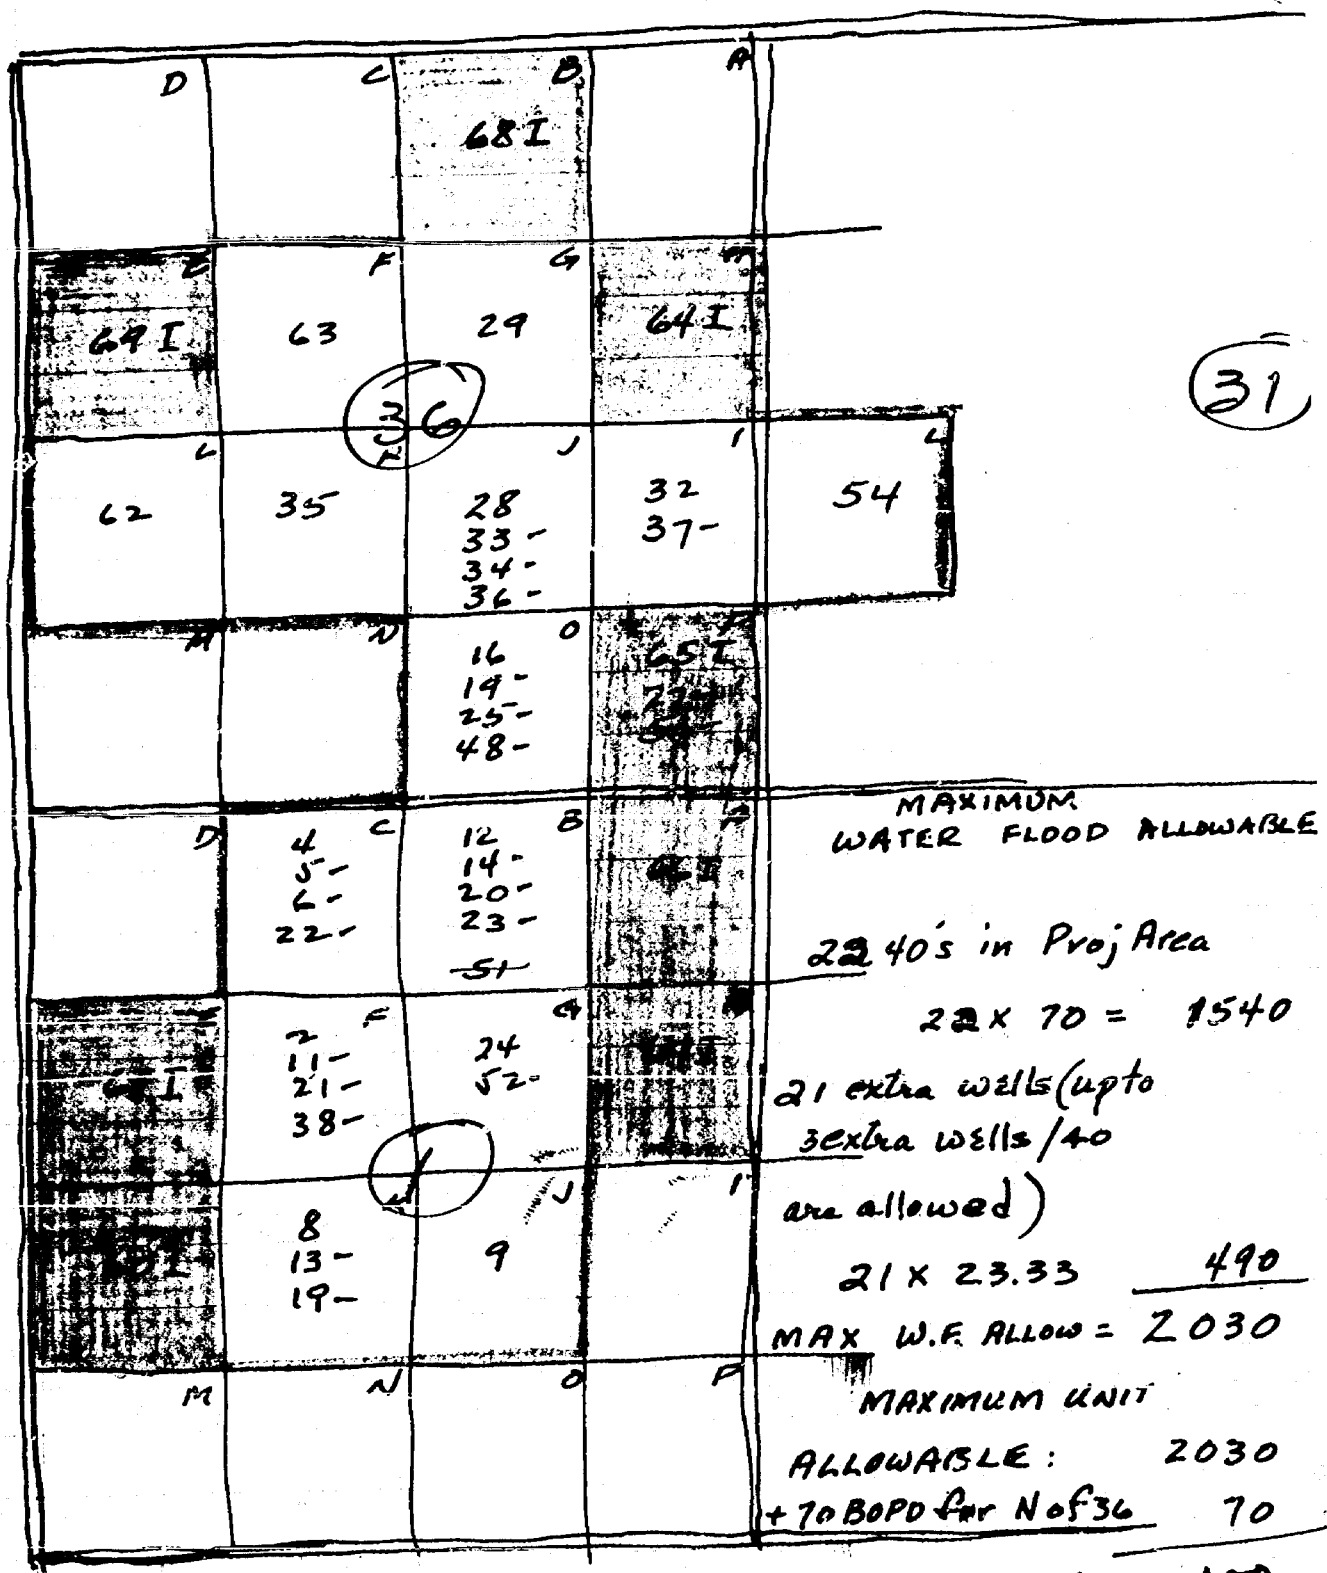 D C B A
68 I
F G
69 I 63 29 64 I
36
31
L J I L
62 35 28 32 54
33 - 37 -
34 -
36 -
M N O P
16 65 I
19 -
25 -
48 -
D C B
4 12
5 - 14 -
6 - 20 -
22 - 23 -
51
F G
2 24
11 - 52 -
21 -
38 -
1
J I
8 9
13 -
19 -
M N O P
MAXIMUM
WATER FLOOD ALLOWABLE
22 40's in Proj Area
22 x 70 = 1540
21 extra wells (up to
3 extra wells / 40
are allowed)
21 x 23.33 490
MAX W.F. ALLOW = 2030
MAXIMUM UNIT
ALLOWABLE: 2030
+ 70 BOPD for N of 36 70